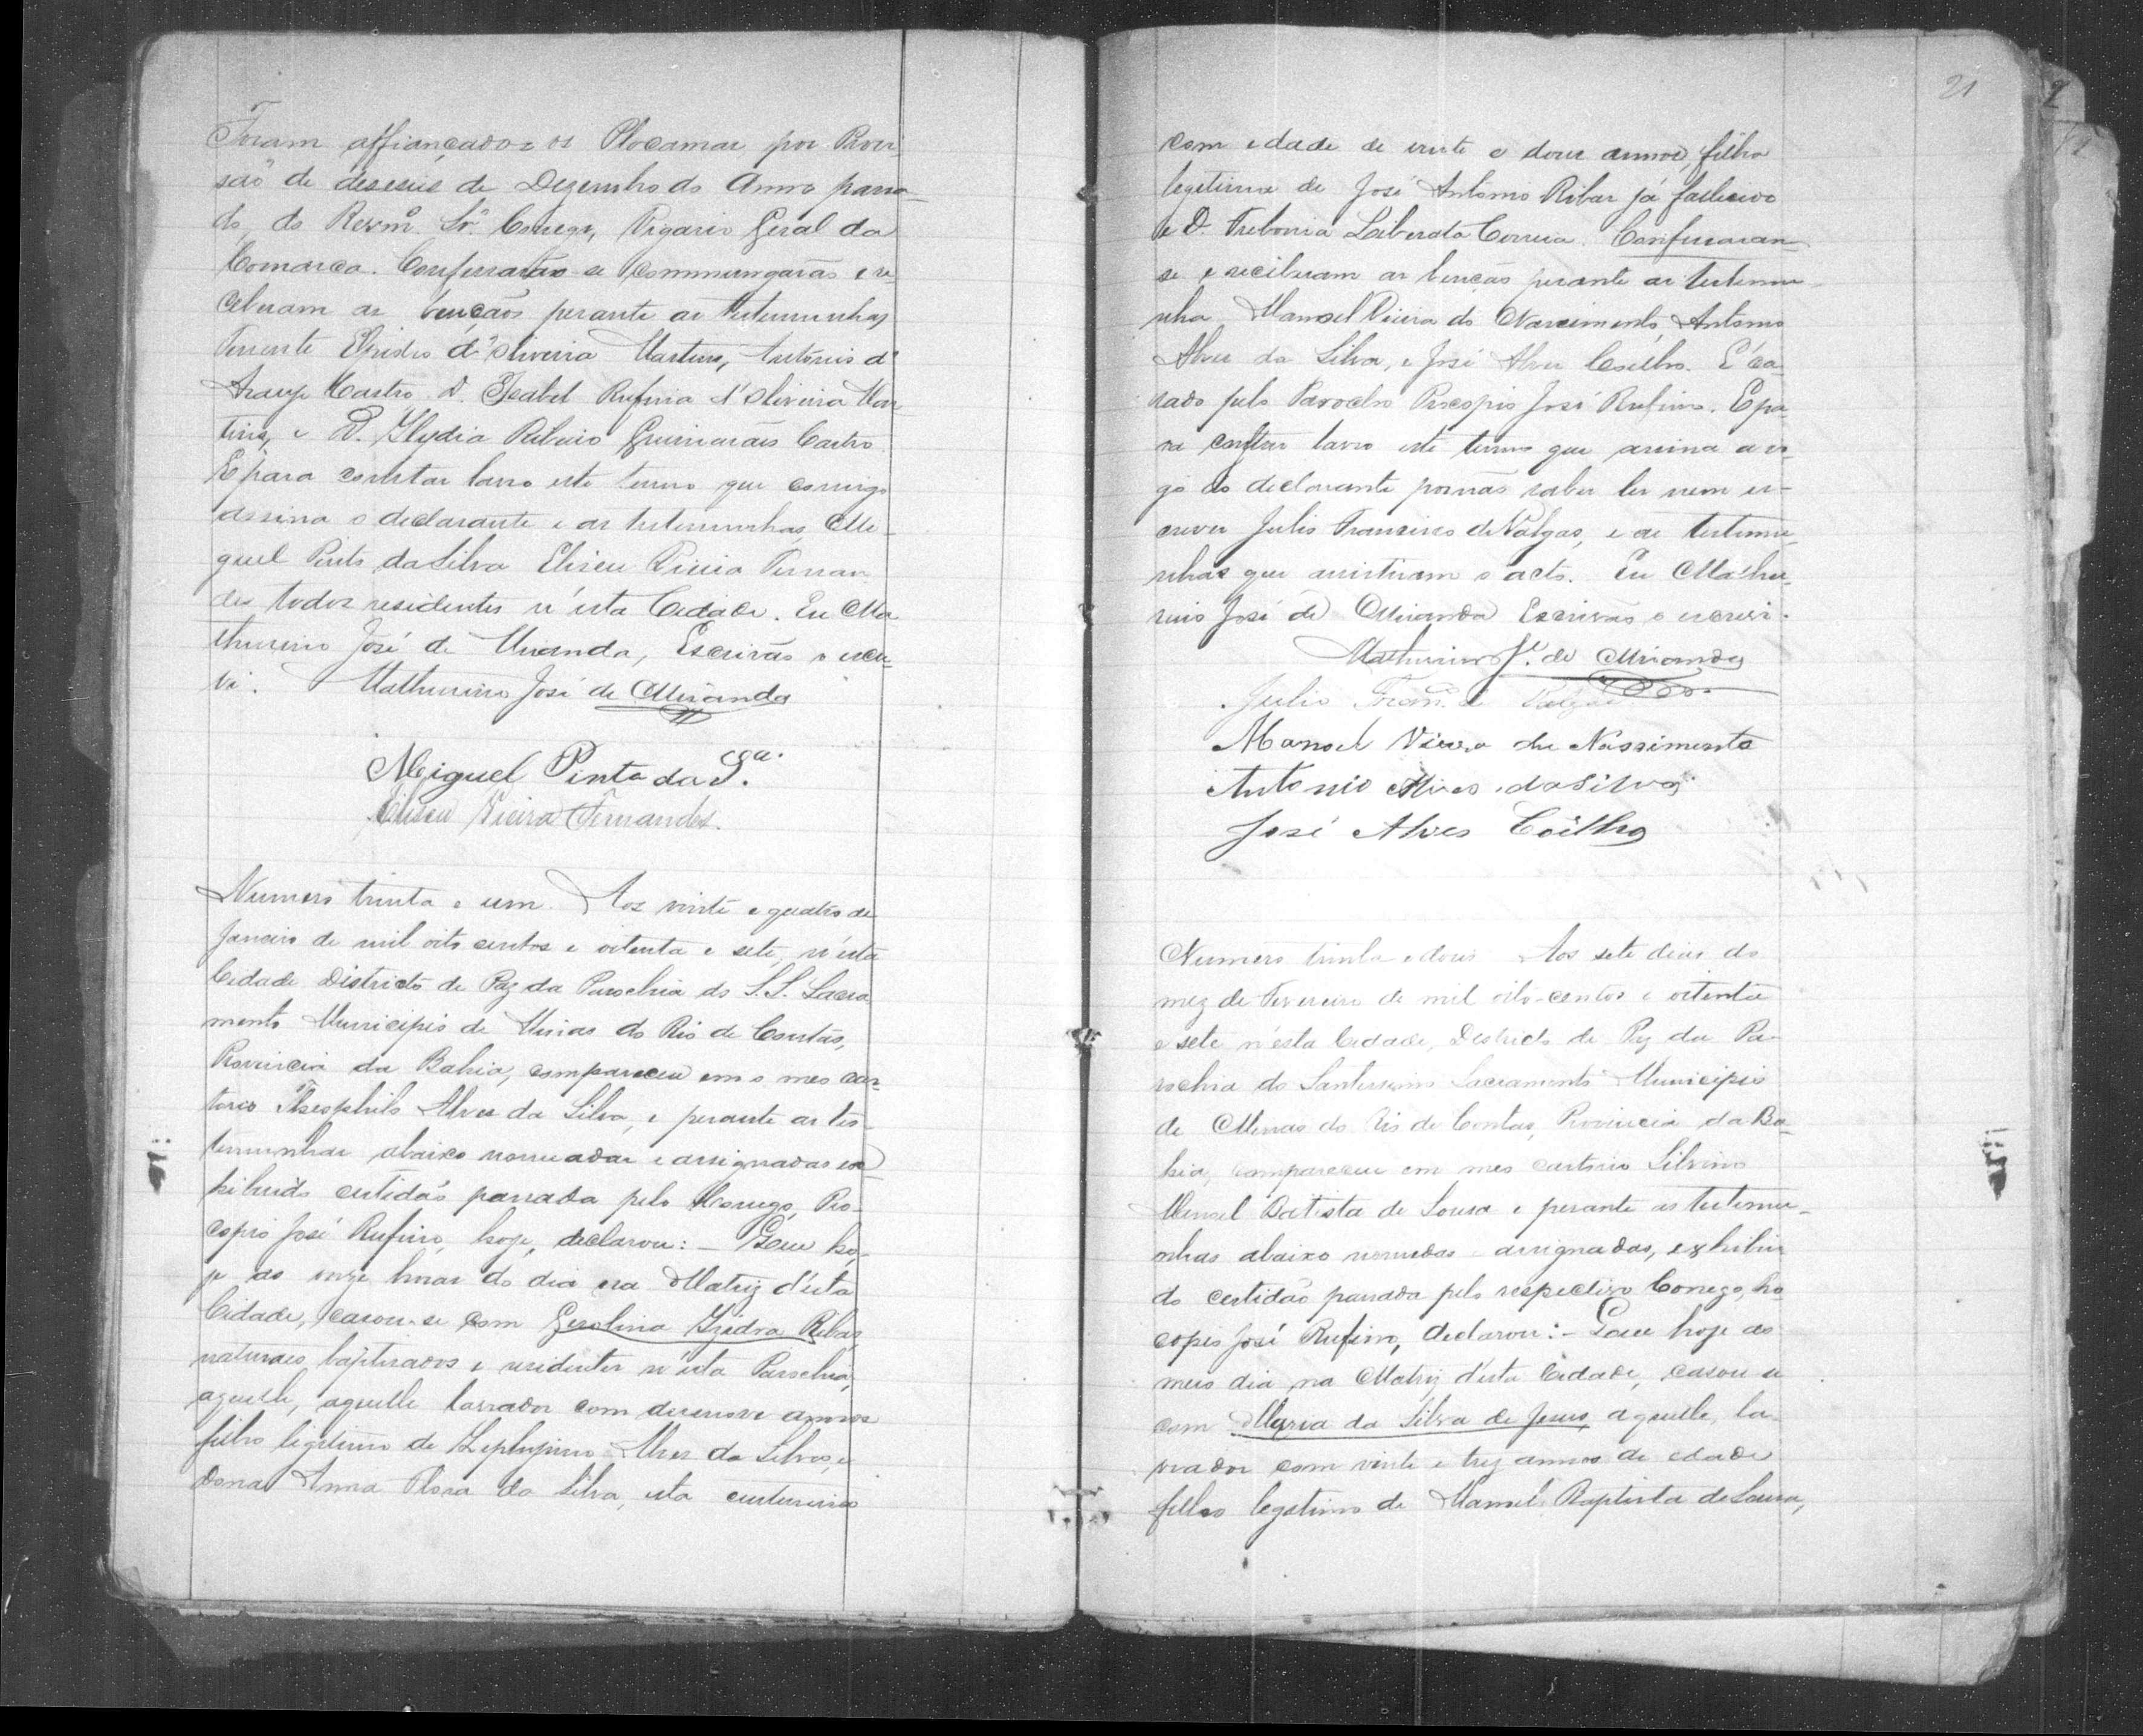 Foram affiançados os Plocamar por Provi
são de deseseis de Dezembro do Anno passa-
do, do Revmº Sr. Conego, Vigario Geral da
Comarca. Confessarão se commungarão e re
ceberam as bençãos perante as testemunhas
Tenente d'Oliveira Martins, Antonio d'
Araujo Castro D. Isabel Rufina d'Oliveira Mar
tins, e D. Ribeiro Guimarães Castro
E para constar lavro este termo que comigo
assina o declarante e as testemunhas, Mi-
guel Pinto da Silva Eliseu Vieira Fernan
des todos residentes n'esta Cidade. Eu Ma
thurino José de Miranda, Escrivão o escre
vi. Mathurino José de Miranda
Miguel Pinto da Sª.
Eliseu Vieira Fernandes.
Numero trinta e um. Aos vinte e quatro de
Janeiro de mil oito centos e oitenta e sete, n'esta
Cidade Districto de Paz da Parochia do S.S. Sacra
mento Municipio de Minas do Rio de Contas,
Provincia da Bahia, compareceu em o meo car-
torio Theophilo Alves da Silva, e perante as tes-
temunhas abaixo nomeadas e assignadas ex
hibindo certidão passada pelo Conego, Pro-
copio José Rufino, hoje, declarou: - Que ho-
je as onze horas do dia na Matriz d'esta
Cidade, casou-se com Gesolina Izidra Ribas,
naturaes, baptisados e residentes n'esta Parochia,
aquelle, aquelle lavrador com desenove annos
filho legitimo de Zephyrino Alves da Silva, e
Dona Anna Flora da Silva, esta costureira
21
com edade de vinte e dous annos, filha
legitima de José Antonio Ribas já fallecido
e D. Trebonia Liberata Correia. Confessaram
se e receberam as bençãos perante as testemu-
nha Manoel Vieira do Nascimento, Antonio
Alves da Silva, e José Alves Coelho. E' ca-
sado pelo Parocho Procopio José Rufino. E pa-
ra constar lavro este termo que assina a ro-
go do declarante por não saber ler nem es-
crever Julio Francisco de Valgas, e as testemu-
nhas que assistiram o acto. Eu Mathu-
rino José de Miranda Escrivão o escrevi.
Mathurino Je. de Miranda
Julio Franco. de
Manoel Vieira do Nassimento
Antonio Alves da Silva
José Alves Coêlho
Numero trinta e dous Aos sete dias do
mez de Fevereiro de mil oito-centos e oitenta
e sete n'esta Cidade, Districto de Paz da Pa-
rochia do Santissimo Sacramento Municipio
de Minas do Rio de Contas, Provincia da Ba-
hia, compareceu em meo cartorio Silvino
Manoel Batista de Sousa e perante as testemu-
nhas abaixo nomedas assignadas, exhibin
do certidão passada pelo respectivo Conego, Pro
copio José Rufino, declarou: - Que hoje ao
meio dia na Matriz d'esta Cidade, casou se
com Maria da Silva de Jesus, aquelle, la-
vrador com vinte e trez annos de edade
filho legitimo de Manoel Baptista de Sousa,